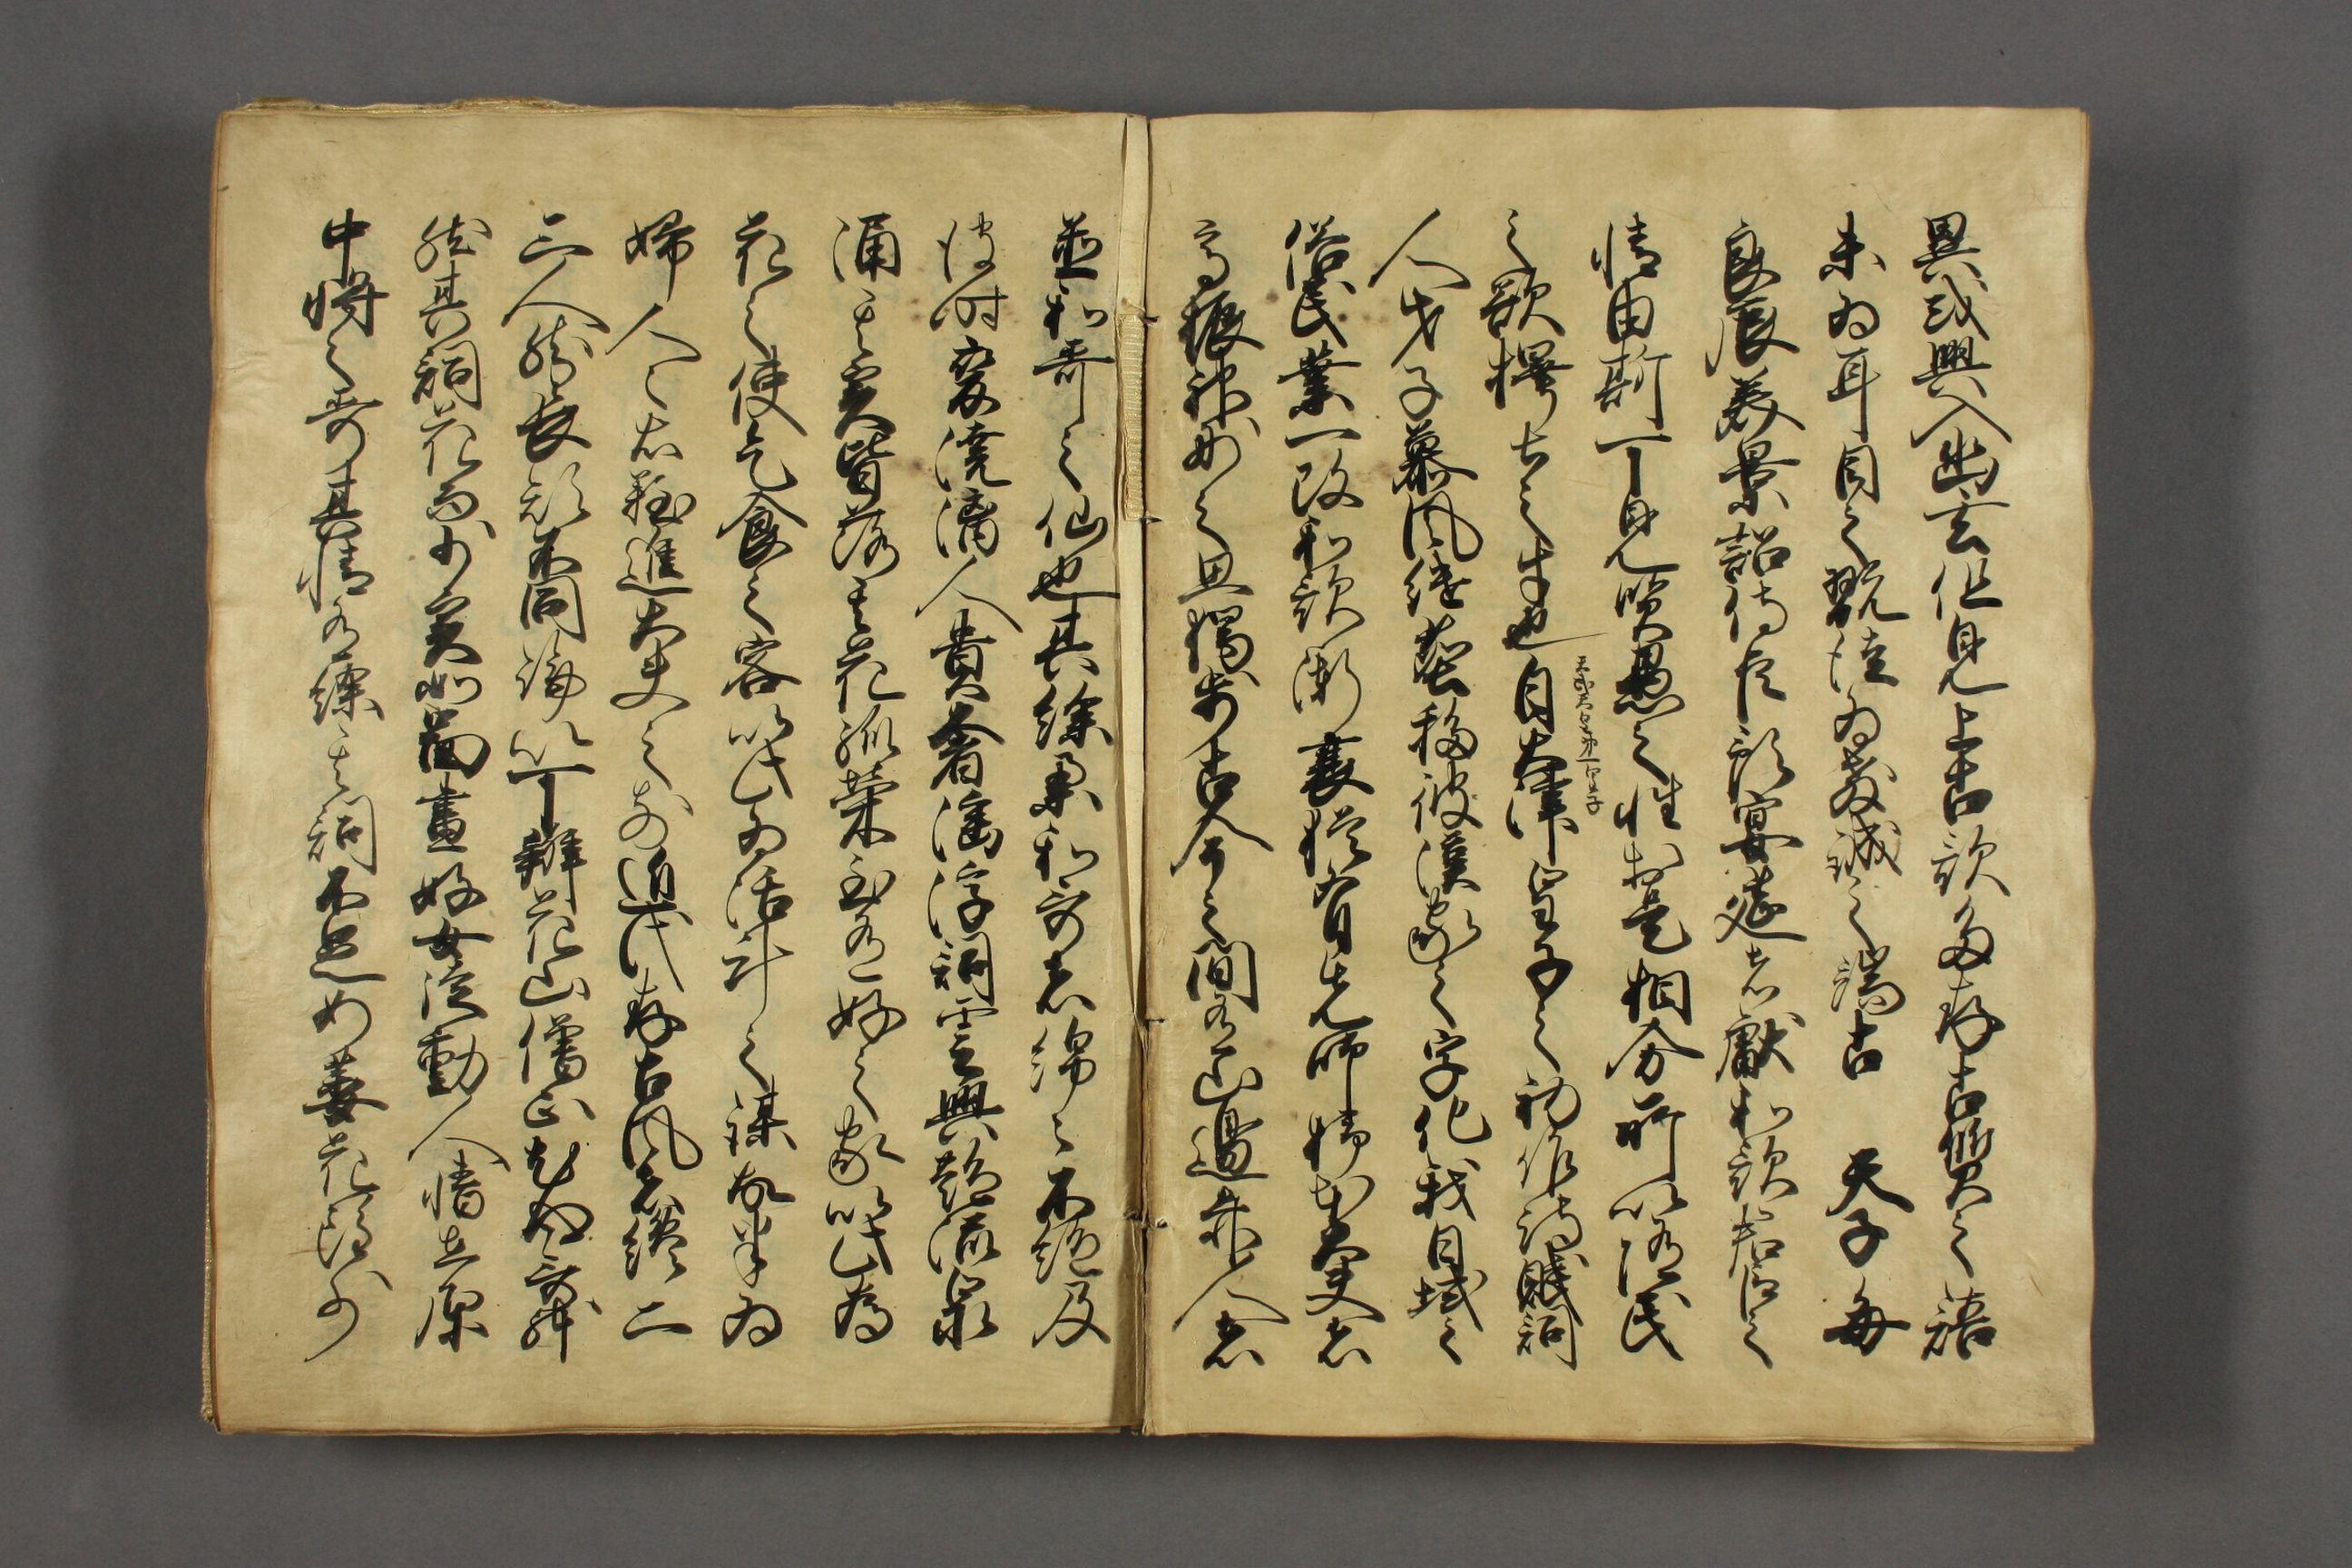 異或興入幽玄但見上古歌多存古質之語
未為耳目之翫徒為教誡之端古 天子毎
良辰美景詔侍臣預宴莚者獻和歌君臣之
情由斯可見賢愚之性於是相分所以随民
之欲擇士之才也自大津皇子之初作詩賦詞
天武天皇第一皇子
人才子慕風継塵移彼漢家之字化我日域之
俗民業一改和歌漸衰然猶有先師柿本大夫者
高振神妙之思獨歩古今之間有山邊赤人者
並和哥之仙也其餘業和哥者綿々不絶及
彼時變澆漓人貴奢淫浮詞雲興艶流泉
涌其實皆落其花孤榮至有好色之家以此為
花之使乞食之客以此為活計之謀故半為
婦人之右難進大夫之前近代存古風者纔二
三人然長短不同論以可辨花山僧正尤得哥躰
然其詞花而少實如圖畫好女徒動人情在原
中将之哥其情有餘其詞不足如萎花雖少